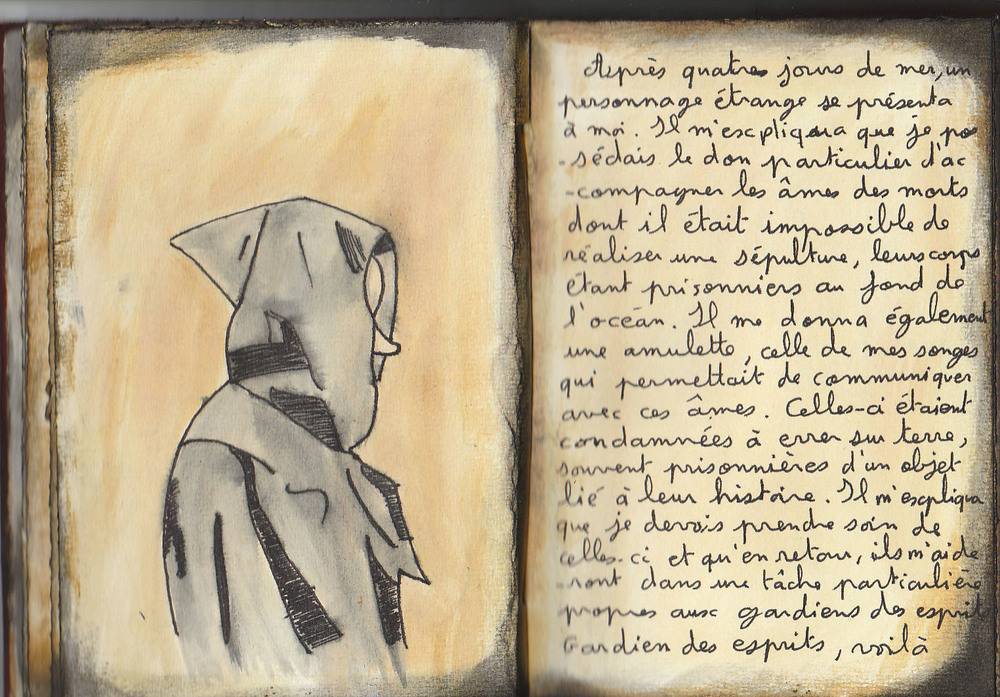 Après quatre jours de mer, un
personnage étrange se présenta
à moi. Il m'escpliqua que je po
-sédais le don particulier d'ac
-compagner les âmes des morts
dont il était impossible de
réaliser une sépulture, leurs corps
étant prisonniers au fond de
l'océan. Il me donna également
une amulette, celle de mes songes
qui permettait de communiquer
avec ces âmes. Celles-ci étaient
condamnées à errer sur terre,
souvent prisonnières d'un objet
lié à leur histoire. Il m'escpliqua
que je devais prendre soin de
celles-ci et qu'en retour, ils m'aide
-ront dans une tâche particulière
propres aux gardiens des esprits
Gardien des esprits, voilà